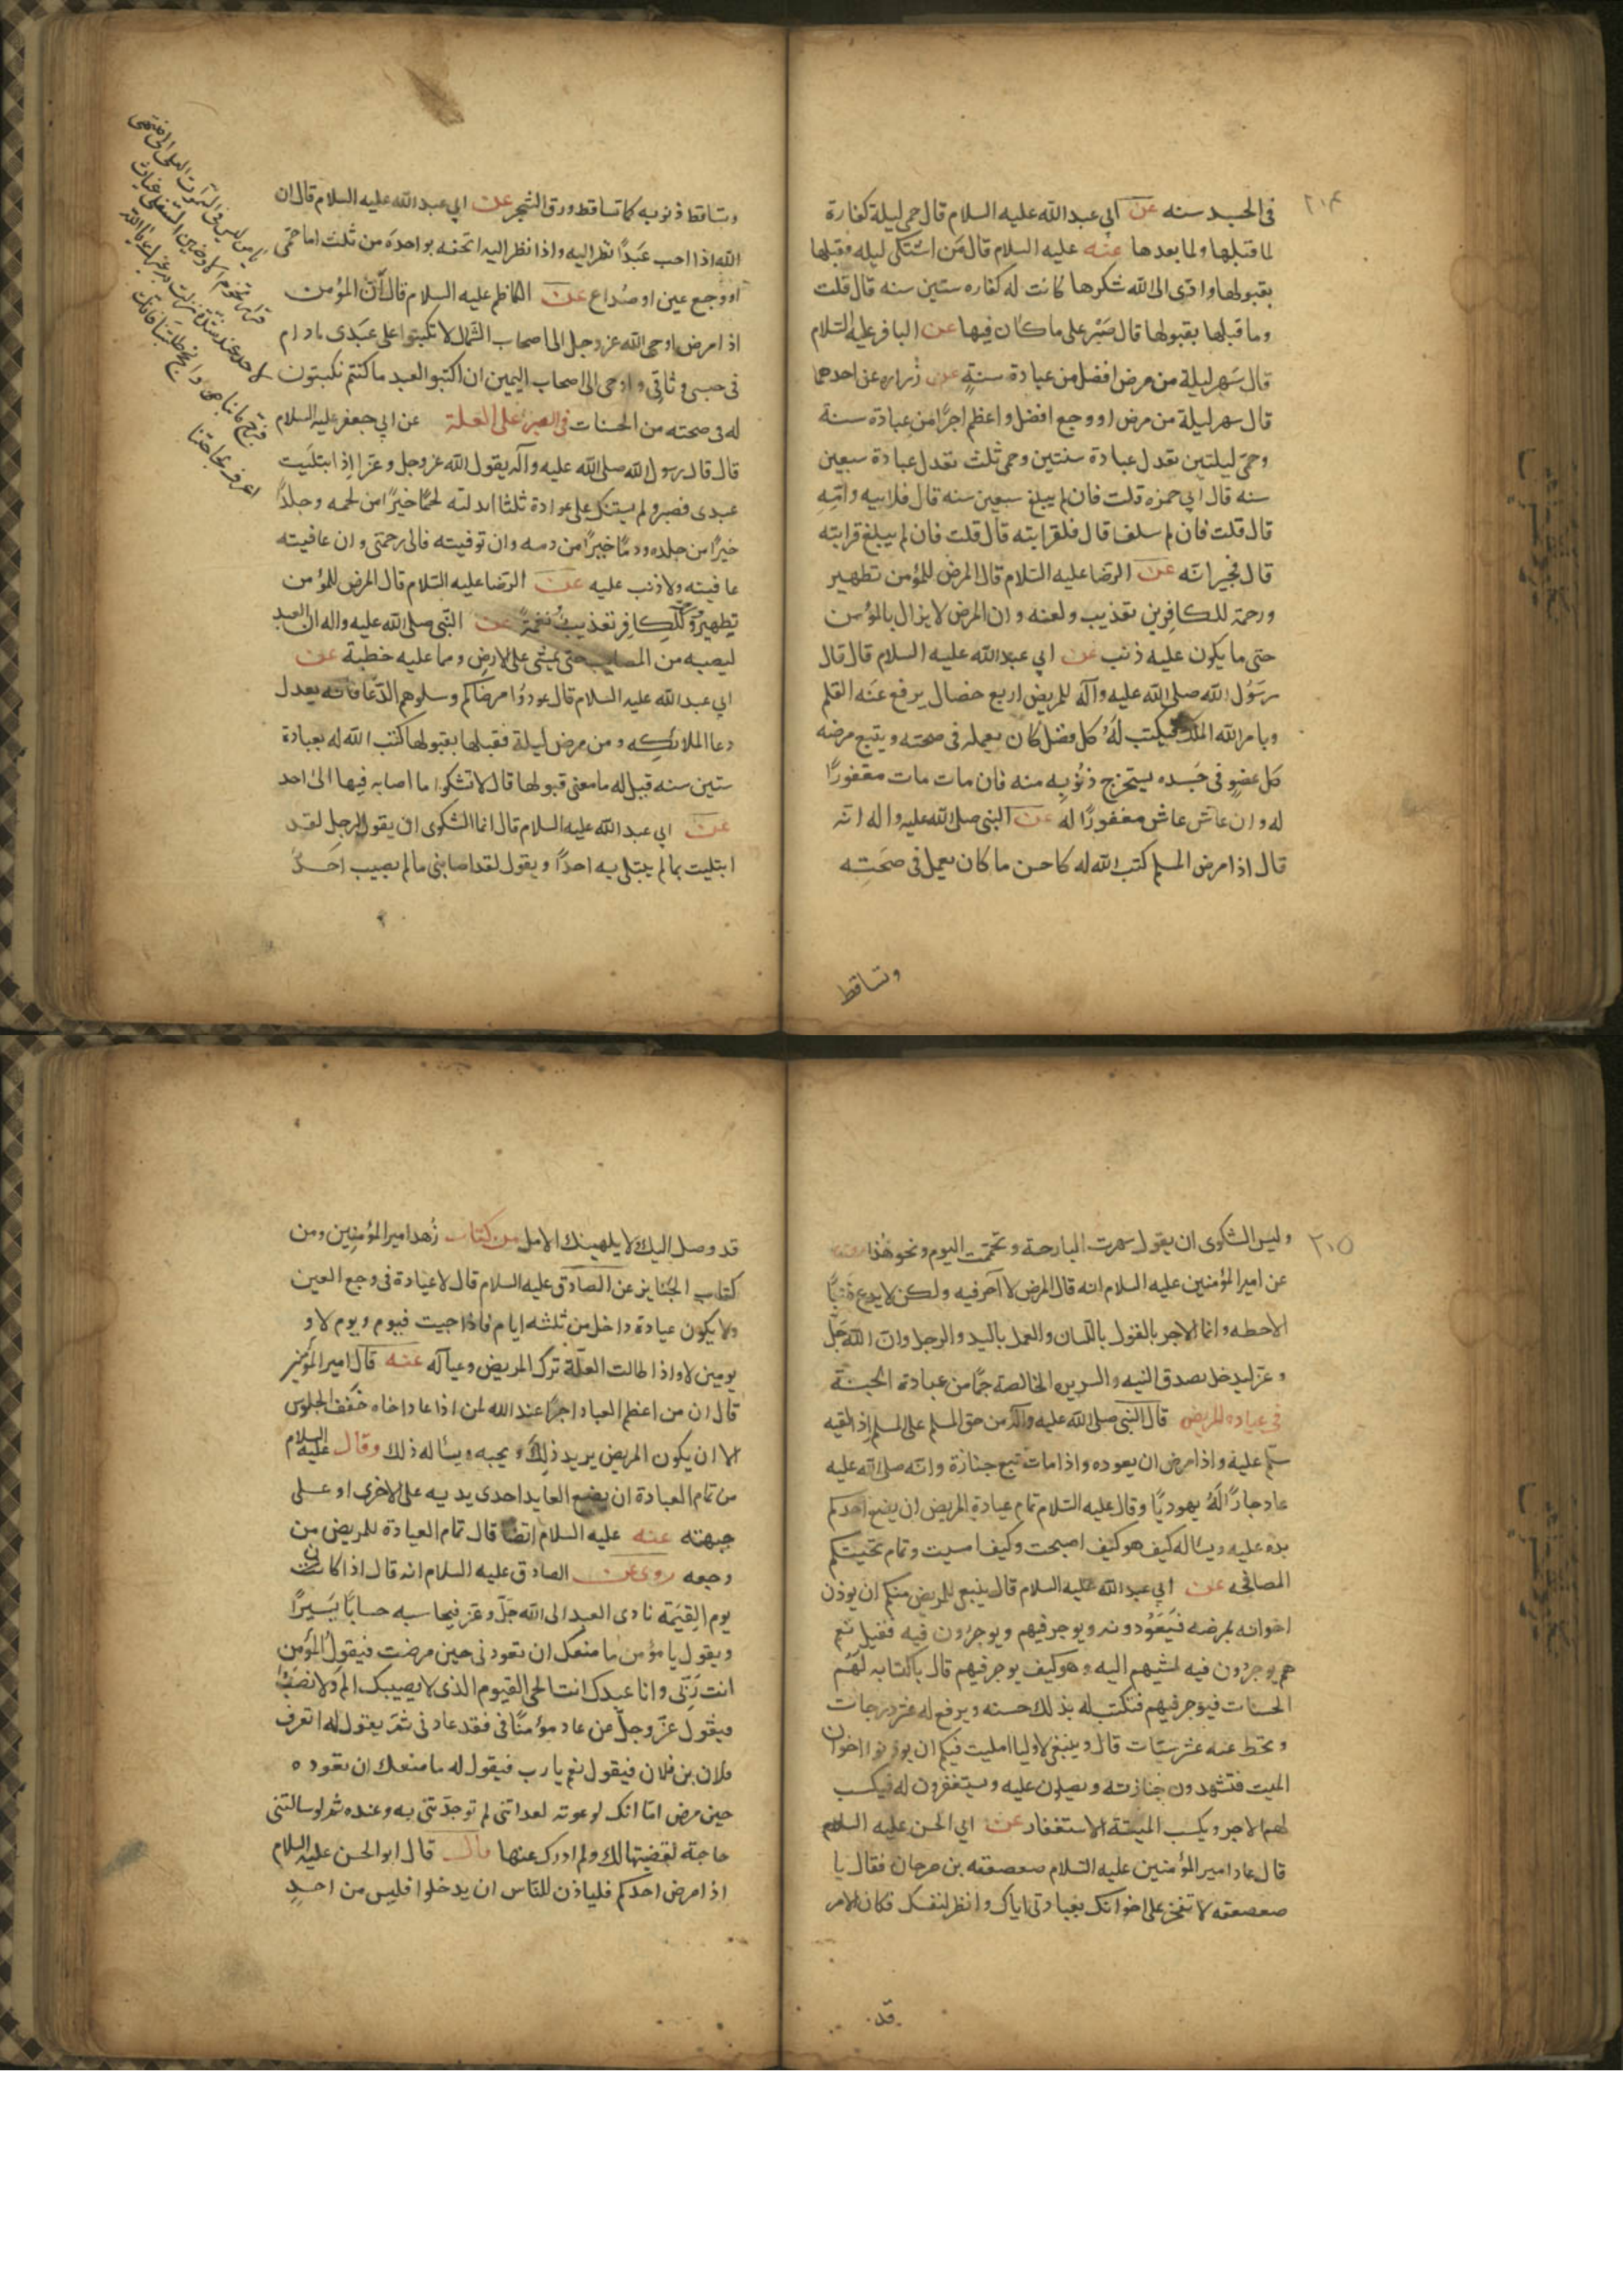 ٢٠٤
فى الجسد سنه عن ابي عبد الله عليه السلام قال حمى ليلة كفارة
لما قبلها ولما بعدها عنه عليه السلام قال من اشتكى ليله فقبلها
بقبولها وادى الى الله شكرها كانت له كفاره ستين سنه قال قلت
وما قبلها بقبولها قال صَبْر على ما كان فيها عن الباقر عليه السّلام
قال سَهر ليلة من مرض افضل من عبادة سنةٍ عن زراره عن احدهما
قال سهر ليلة من مرض او وجع افضل واعظم اجرًا من عبادة سنة
وحمى ليلتين تعدل عبادة سنتين وحمى ثلث تعدل عبادة سبعين
سنه قال ابي حمزه قلت فان لم يبلغ سبعين سنه قال فلابيه وامّهِ
قال قلت فان لم سلغا قال فلقرابته قال قلت فان لم يبلغ قرابته
قال فجيرانه عن الرضا عليه السّلام قال المرض للمؤمن تطهير
ورحمة للكافرين تعذيب ولعنه وان المرض لا يزال بالمؤمن
حتى ما يكون عليه ذنب عن ابي عبد الله عليه السلام قال قال
رسَوُل الله صلى الله عليه وآله للمريض اربع خصال يرفع عنَه القلم
ويامر الله الملك فيكتب لَهُ كل فضل كان يعمله فى صحته ويتبع مرضه
كل عضوٍ فى جَسَده يستخرج ذنُوُبِه منه فان مات مات مغفورًا
له وان عاش عاش مغفورًا له عن النبى صلى الله عليه واله انه
قال اذا مرض المسلم كتب الله له كاحسن ما كان يعمل فى صحَتِه
وتساقط
وتساقط ذنوبه كما تساقط ورق الشجر عن ابي عبد الله عليه السلام قال ان
الله اذا احب عَبَدًا نظر اليه واذا نظر اليه اتحفه بواحدَه من ثلث اما حمّى
او وجع عين او صُداع عن الكاظم عليه السلام قال انّ المؤمن
اذا مرض اوحى الله عز وجل الى اصحاب الشمال لا تكبتوا على عبَدى مادام
فى حبسى وثاقى واوحى الى اصحاب اليمين ان اكتبوا لعبد ما كنتم تكبتون
له فى صحته من الحسنات فى الصبر على العلة عن ابي جعفر عليه السلام
قال قال رسول الله صلى الله عليه وآله يقول الله عز وجل وعزا اِذا ابتليَت
عبدى فصبر ولم يشتك على عوادة ثلثا ابدلته لحمًا خيرًا من لحمه وجلدًا
خيرًا من جلده ودمًا خيرًا من دمه وان توفيته فالى رحمتى وان عافيته
عافيته ولا ذنب عليه عن الرضا عليه السّلام قال المرض للمؤمن
تطهيرٌ وَلِلكافِر تعذيبٌ ونقمةٌ عن النّبى صلى الله عليه واله ان العبد
ليصيبه من المصايب حتى يمشى على الارض وما عليه خطيئة عن
ابي عبد الله عليه السلام قال عودوُا مرضاكم وسلوهم الدّعا فانه يعدل
دعا الملائكه ومن مرض ليلة فقبلها بقبولها كتب الله له بعبادة
ستين سنه قيل له ما معنى قبولها قال لا تشكوا ما اصابه فيها الى احد
عن ابي عبد الله عليه السلام قال انما الشكوى ان يقول الرجل لقد
ابتليت بما لم يبتلى به احدًا ويقول لقد اصابنى ما لم يصيب احَدًا
٢٠٥
وليس الشكوى ان يقول سهرت البارحة وتحممت اليوم ونحو هذا
عن امير المؤمنين عليه السلام انه قال المرض لا اجر فيه ولكن لا يدع ذنبًا
الا حطه وانما الاجر بالقول باللسان والعمل باليد والرجل وان الله جَلّ
وعز ليدخل بصدق النيه والسريره الخالصة جمًا من عباده الجنة
فى عياده المريض قال النّبى صلى الله عليه وآله من حق المسلم على المسلم اِذا لقيه
سلم عليه واذا مرض ان يعوده واذا مات تبع جنازة وانه صلى الله عليه
عاد جارًا لَهُ يهوديًا وقال عليه السّلام تمام عيادة المريض ان يضع احدكم
يده عليه ويسأله كيف هو كيف اصبحت وكيف امسيت وتمام تحيتكم
المصافحه عن ابي عبد الله عليه السلام قال ينبغى للمريض منكم ان يوذن
اخوانه بمرضه فيَعَوُدونه ويوجر فيهم ويوجرُون فيه فقيل نعم
هم يوجرون فيه لمشيهم اليه وهو كيف يوجر فيهم قال باكتسابه لهُم
الحسنات فيؤجر فيهم فتكتب له بذلك حسنه ويرفع له عشر درجات
وتحط عنه عشر سيّات قال وينبغى لاوليا الميت فيكم ان يوذنوا اخوان
الميت فتشهدون جنازته ويصلون عليه ويستغفرون له فيكسب
لهم الاجر ويكسب الميت الاستغفار عن ابي الحسن عليه السلام
قال عاد امير المؤمنين عليه السّلام صعصعه بن صوحان فقال يا
صعصعه لا تفخر على اخوانك بعيادتى اياك وانظر لنفسك فكان الامر
قد
قد وصل اليك ولا يلهينك الامل من كتاب زُهد امير المؤمنين ومن
كتاب الجنايز عن الصادق عليه السلام قال لا عيادة فى وجع العين
ولا يكون عيادة داخل من ثلثه ايام فاذا جيت فيوم ويوم لا و
يومين لا واذا طالت العلّة ترك المريض وعياله عنه قال امير المؤمنين
قال ان من اعظم العباد اجرًا عند الله لمن اذا عاد اخاه خفّف الجلوس
الا ان يكون المريض يريد ذلِكَ ويحبه ويسأله ذلك وقال عليه السلام
من تمام العيادة ان يضع العايد احدى يديه على الاخرى او على
جبهته عنه عليه السلام ايضا قال تمام العيادة للمريض من
وجعه روى عن الصادق عليه السلام انه قال اذا كان
يوم القِيَمَة نادى العبد الى الله جَلّ وعَز فيحاسبه حسابًا يَسَيرًا
ويقول يا مؤمن ما منعك ان تعودنى حين مرضت فيقولُ المؤمن
انت رَبّى وانا عبدك انت الحى القيوم الذى لا يصيبك الم وَلا نصَب
فيقول عزّ وجلّ من عاد مؤمنًا فى فقد عادنى ثمّ يقول له اتعرف
فلان بن فلان فيقول نعم يا رب فيقول له ما منعك ان تعوده
حين مرض امّا انك لو عدته لعداتنى لم توجدتنى به وعنده ثم لو سالتنى
حاجة لقضيتها لك ولم اردك عنها قال قال ابو الحسن عليه السلام
اذا مرض احدكم فلياذن للناس ان يدخلوا فليس من احدٍ